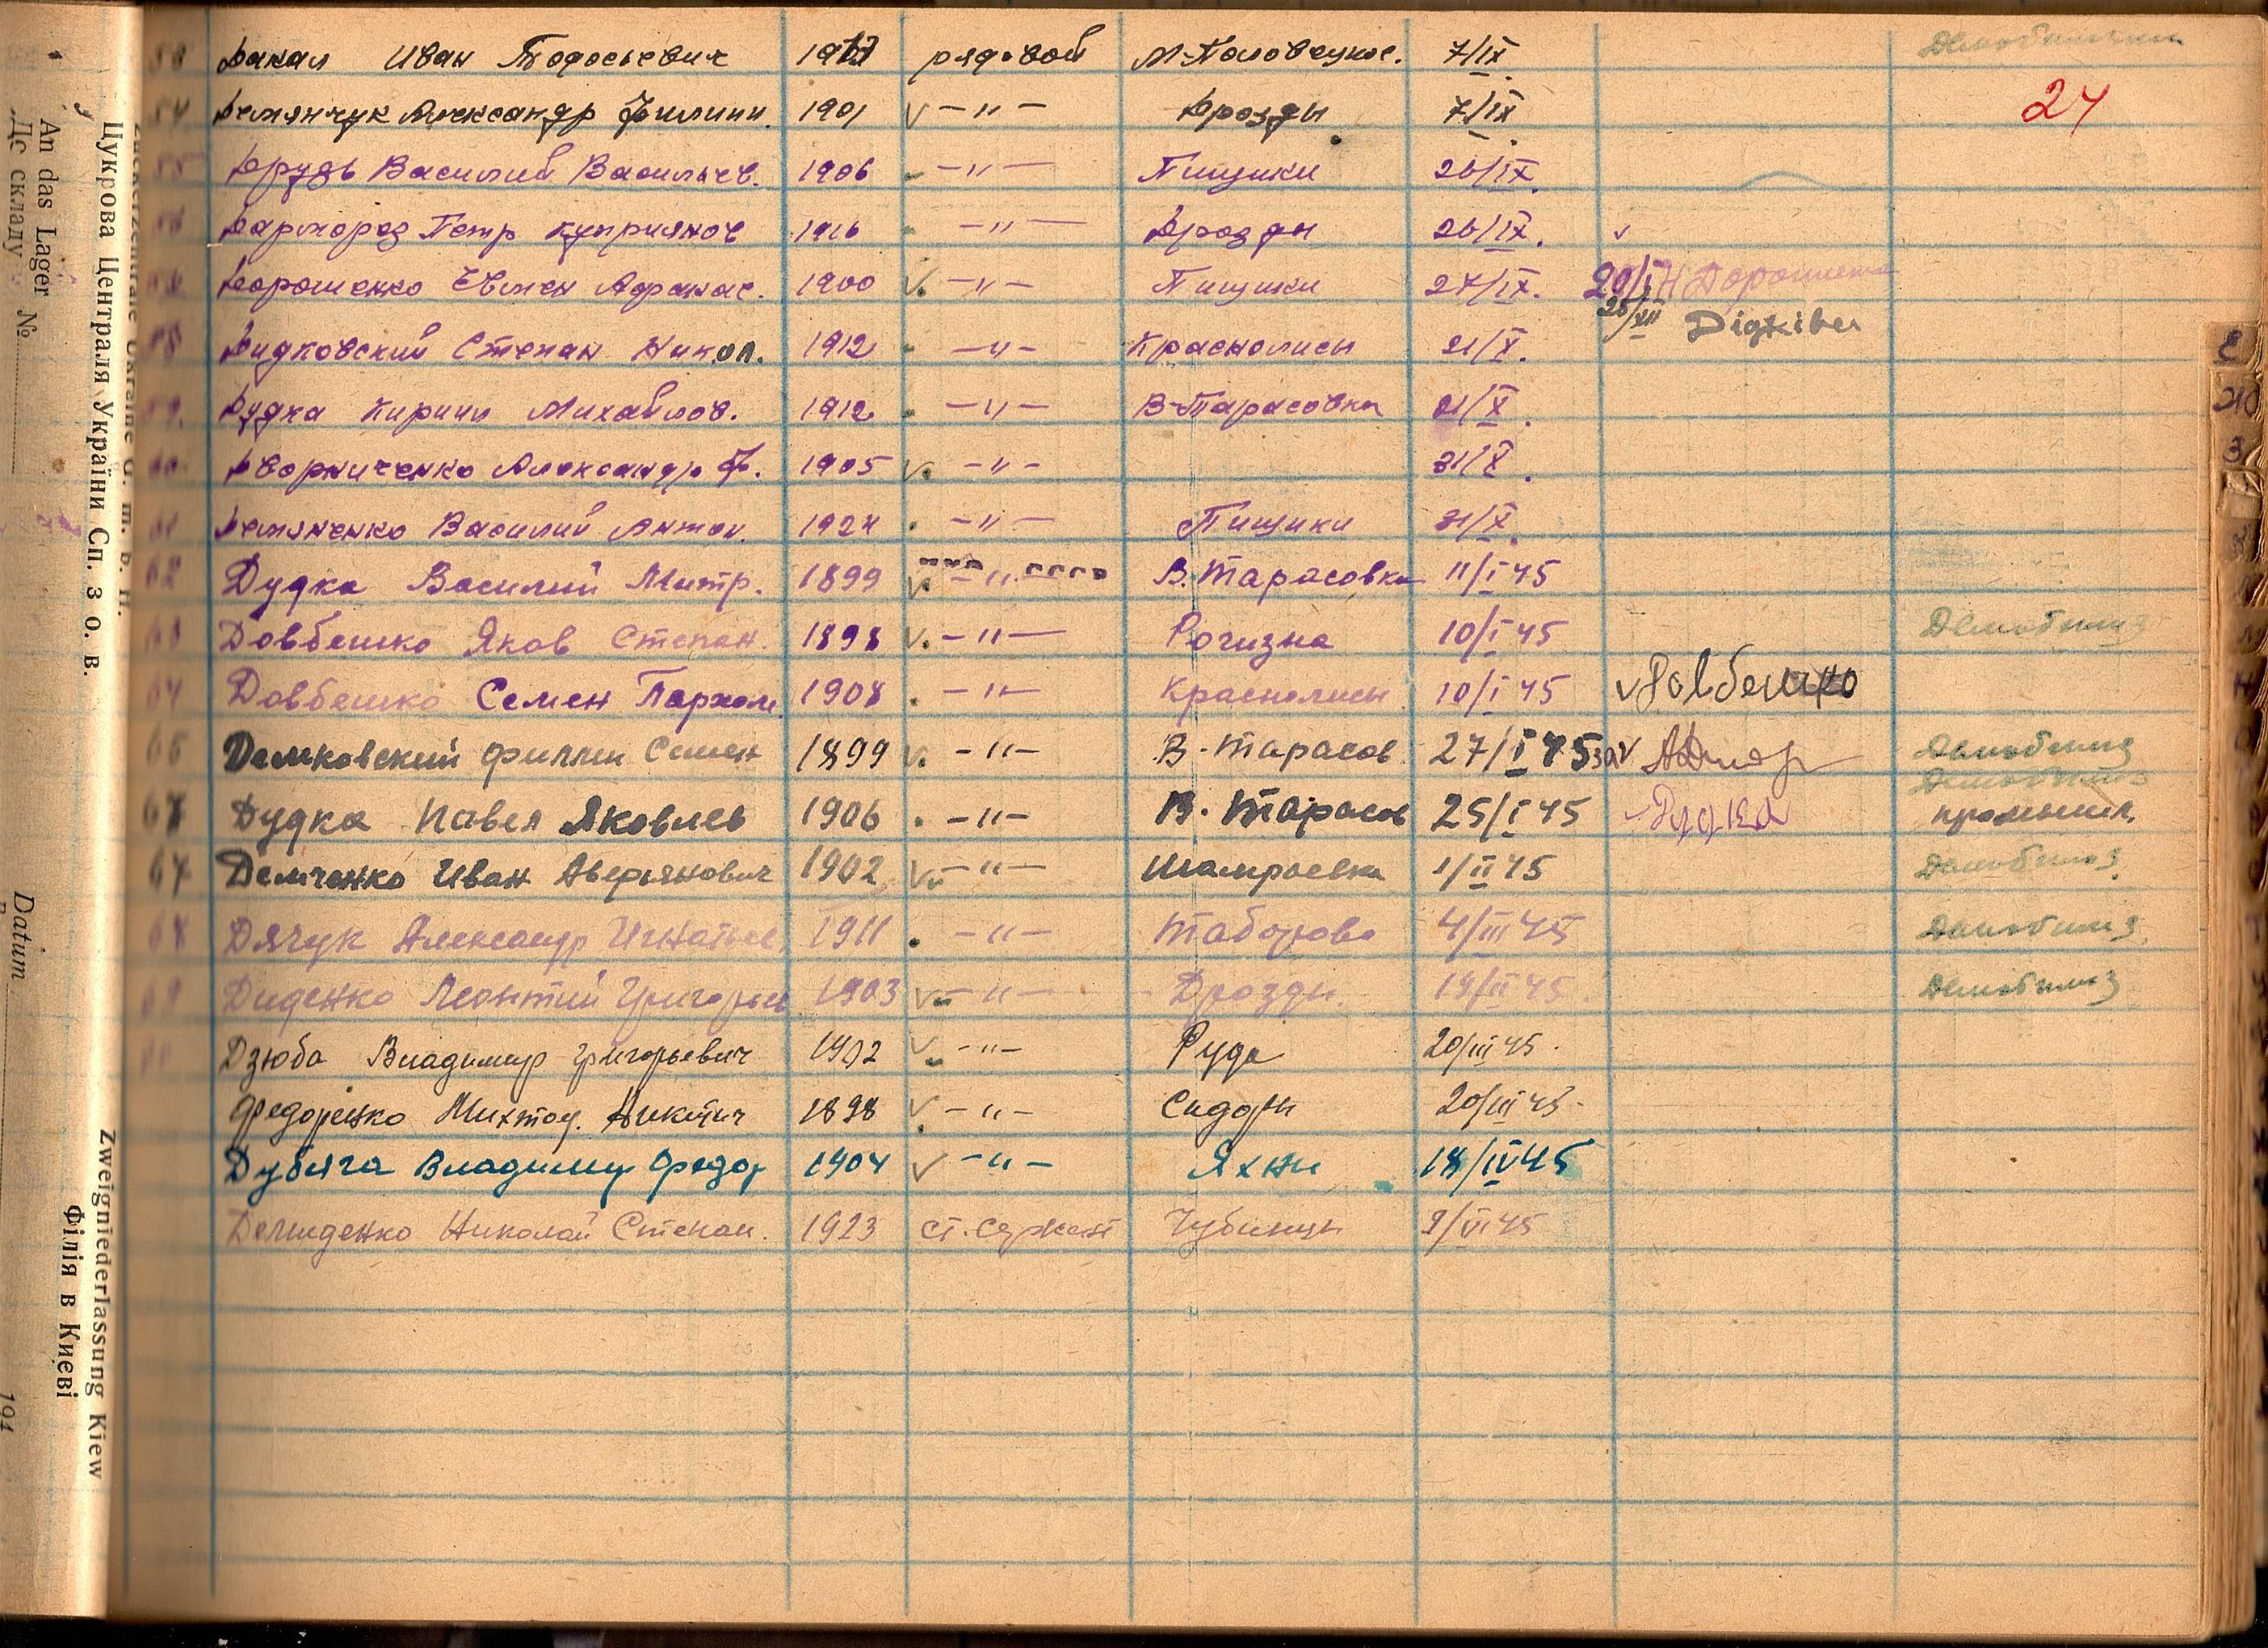 53 Дакал Иван Тодосьевич 1917 рядовой М-Половецкое. 7/IX Демобилизац
24
54 Демянчук Александр Филипп. 1901 v — " — Дрозды 7/IX
55 Друдь Василий Васильев. 1906 — " — Пищики 26/IX.
56 Дармороз Петр Куприянов 1916 — " — Дрозды 26/IX. v
57 Дорошенко Евмен Афанас. 1900 v. — " — Пищики 27/IX. 20/I Н Дорошенко
25/XII Дідківсь
58 Дидковский Степан Никол. 1912 — " — Краснолисы 21/X.
59. Дудка Кирилл Михайлов. 1912 — " — В-Тарасовка 21/X.
60. Дворниченко Александр Ф. 1905 v. — " — 31/X.
61 Демяненко Василий Антон. 1924 — " — Пищики 31/X.
62 Дудка Василий Митр. 1899 v. — " — В. Тарасовка 11/I 45
63 Довбешко Яков Степан. 1898 v. — " — Рогизна 10/I 45 Демобилиз
64 Довбешко Семен Пархом. 1908 — " — Краснолисы 10/I 45 v Довбешко
65 Демковский Филлип Семен 1899 v. — " — В. Тарасов. 27/I 45 Демобилиз
Демобилиз
Дудка Павел Яковлев 1906 — " — В. Тарасов 25/I 45 Дудка промышл.
67 Демченко Иван Аверьянович 1902 v. — " — Шамраевка 1/II 45 Демобилиз.
68 Дячук Александр Игнатьев. 1911 — " — Таборово 4/III 45 Демобилиз.
69 Диденко Леонтий Григорьев 1903 v. — " — Дрозды. 19/II 45. Демобилиз
Дзюба Владимир Григорьевич 1902 v. — " — Руда 20/III 45.
Федоренко Никитич 1898 v. — " — Сидоры 20/III 45.
Дубяга Владимир Федор 1904 v — " — Яхны 18/IV 45
Демиденко Николай Степан. 1923 ст. сержант Чубинцы 9/VI 45
Цукрова Централя України Сп. з о. в.
An das Lager №
До складу
Datum
Zweigniederlassung Kiew
Філія в Києві
194